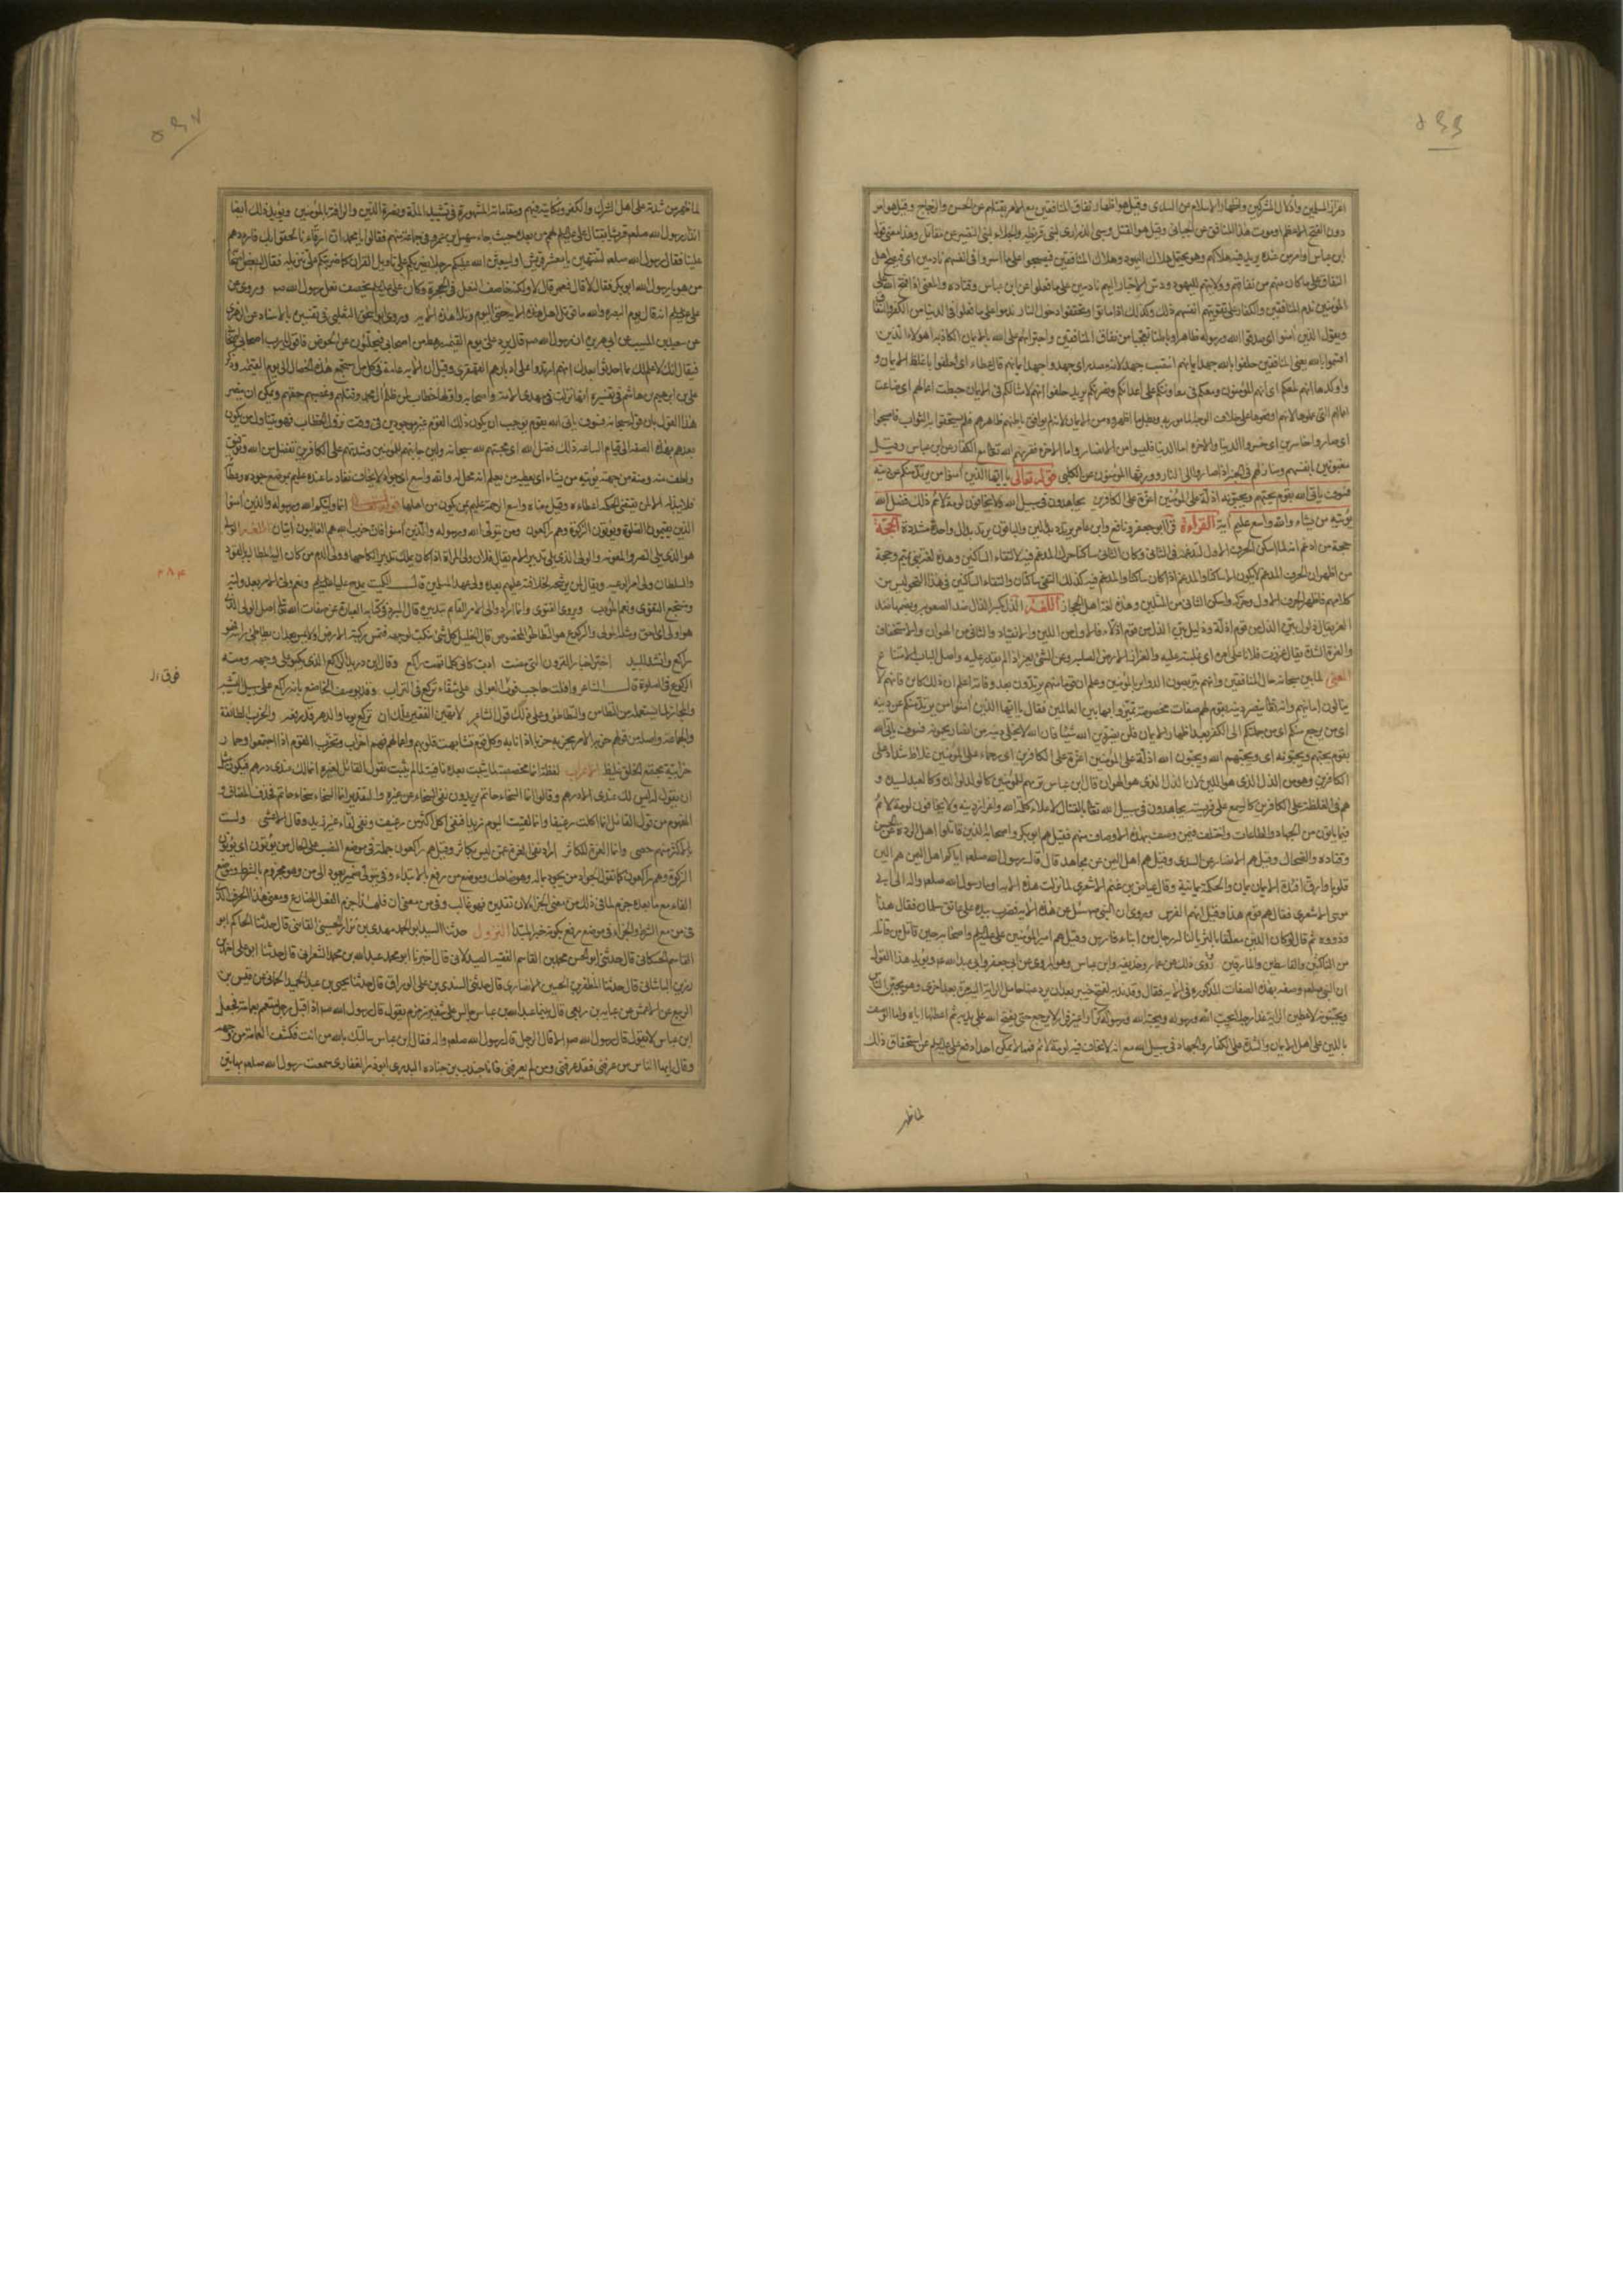 اعزاز المسلمين واذلال المشركين واظهار الاسلام عن السدى وقيل هو اظهار نفاق المنافقين مع الامر بقتالهم عن الحسن والزجاج وقيل هو امر
دون الفتح الاعظم او موت هذا المنافق عن الجبائى وقيل هو القتل وسبى الذرارى لبنى قريظه والجلاء لبنى النضير عن مقاتل وهذا معنى قول
ابن عباس او امر من عنده
النفاق على ما كان منهم من نفاقهم وولايتهم لليهود ودس الاخبار اليهم نادمين على ما فعلوا عن ابن عباس وقتاده والمعنى اذا فتح الله على
المؤمنين ندم المنافقين والكفار على تفويتهم انفسهم ذلك وكذلك اذا ماتوا وتحققوا دخول النار ندموا على ما فعلوا فى الدنيا من الكفر والنفاق
ويقول الذين امنوا اى صدقوا الله ورسوله ظاهرا وباطنا تعجبا من نفاق المنافقين واجترائهم على الله بالايمان الكاذبه اهولاء الذين
اقسموا بالله يعنى المنافقين حلفوا بالله جهد ايمانهم انتصب جهد لانه مصدر اى جهدوا جهد ايمانهم قال عطاء اى حلفوا باغلظ الايمان و
اوكدها انهم لمعكم اى انهم المؤمنون ومعكم فى معاونتكم على اعدائكم ونصرتكم يريد حلفوا انهم لامثالكم فى الايمان حبطت اعمالهم اى ضاعت
اعمالهم التى عملوها لانهم اوقعوها على خلاف الوجه المامور به وبطل ما اظهروه من الايمان لانه لم يوافق باطنهم ظاهرهم فلم يستحقوا به الثواب فاصبحوا
اى صاروا خاسرين اى خسروا الدنيا والاخرة اما الدنيا فليسوا من الانصار واما الاخرة فقرنهم الله تعالى مع الكفار عن ابن عباس وقيل
مغبونين بانفسهم ومنازلهم فى الجنة اذ صاروا الى النار وورثها المؤمنون عن الكلبى قوله تعالى يا ايها الذين امنوا من يرتد منكم عن دينه
فسوف ياتى الله بقوم يحبهم ويحبونه اذلة على المؤمنين اعزة على الكافرين يجاهدون فى سبيل الله ولا يخافون لومة لائم ذلك فضل الله
يؤتيه من يشاء والله واسع عليم اية القراءة قرا ابو جعفر ونافع وابن عامر يرتدد بدالين والباقون يرتد بدال واحدة مشددة الحجة
حجة من ادغم انه لما اسكن الحرف الاول ليدغمه فى الثانى وكان الثانى ساكنا حرك المدغم فيه لالتقاء الساكنين وهذه لغة بنى تميم وحجة
من اظهر ان الحرف المدغم لا يكون الا ساكنا والمدغم اذا كان ساكنا والمدغم فيه كذلك التقى ساكنان والتقاء الساكنين فى هذا النحو ليس من
كلامهم فاظهر الحرف الاول وحركه واسكن الثانى من المثلين وهذه لغة اهل الحجاز اللغة الذل بكسر الذال ضد الصعوبة وبضمها ضد
العز يقال ذلول بين الذل من قوم اذلة وذليل بين الذل من قوم اذلاء فالاول من اللين والانقياد والثانى من الهوان والاستخفاف
والعزة الشدة يقال عززت فلانا على امره اى غلبته عليه والعزاز الارض الصلبة وعز الشئ يعز اذا لم يقدر عليه واصل الباب الامتناع
المعنى لما بين سبحانه حال المنافقين وانهم يتربصون الدوائر بالمؤمنين وعلم ان قوما منهم يرتدون بعد وفاته اعلم ان ذلك كائن فانهم لا
ينالون امانيهم والله تعالى ينصر دينه بقوم لهم صفات مخصوصة تميزوا بها بين العالمين فقال يا ايها الذين امنوا من يرتد منكم عن دينه
اى من يرجع منكم اى من جملتكم الى الكفر بعد اظهار الايمان فلن يضر دين الله شيئا فان الله لا يخلى دينه من انصار يحمونه فسوف ياتى الله
بقوم يحبهم ويحبونه اى ويحبهم الله ويحبون الله اذلة على المؤمنين اعزة على الكافرين اى رحماء على المؤمنين غلاظ شداد على
الكافرين وهو من الذل الذى هو اللين لا من الذل الذى هو الهوان قال ابن عباس تراهم للمؤمنين كالولد لوالده وكالعبد لسيده و
هم فى الغلظة على الكافرين كالسبع على فريسته يجاهدون فى سبيل الله تعالى بالقتال لاعلاء كلمة الله واعزاز دينه ولا يخافون لومة لائم
فيما ياتون من الجهاد والطاعات واختلف فيمن وصف بهذه الاوصاف منهم فقيل هم ابو بكر واصحابه الذين قاتلوا اهل الردة عن الحسن
وقتاده والضحاك وقيل هم الانصار عن السدى وقيل هم اهل اليمن عن مجاهد قال قال رسول الله صلعم اتاكم اهل اليمن هم الين
قلوبا وارق افئدة الايمان يمان والحكمة يمانية وقال عياض بن غنم الاشعرى لما نزلت هذه الاية اوما رسول الله صلعم واله الى ابى
موسى الاشعرى فقال هم قوم هذا وقيل انهم الفرس وروى ان النبى ص سئل عن هذه الاية فضرب بيده على عاتق سلمان فقال هذا
وذووه ثم قال لو كان الدين معلقا بالثريا لناله رجال من ابناء فارس وقيل هم امير المؤمنين على عليه السلم واصحابه حين قاتل من قاتله
من الناكثين والقاسطين والمارقين روى ذلك عن عمار وحذيفة وابن عباس وهو المروى عن ابى جعفر وابى عبد الله ع ويؤيد هذا القول
ان النبى صلعم وصفه بهذه الصفات المذكوره فى الاية فقال وقد ندبه لفتح خيبر بعد ان رد عنها حامل الراية اليه مرة بعد اخرى وهو يجبن الناس
ويجبنونه لاعطين الراية غدا رجلا يحب الله ورسوله ويحبه الله ورسوله كرارا غير فرار لا يرجع حتى يفتح الله على يديه ثم اعطاها اياه واما الوصف
باللين على اهل الايمان والشدة على الكفار والجهاد فى سبيل الله مع انه لا يخاف فيه لومة لائم فمما لا يمكن احدا دفع على عليه السلم عن استحقاق ذلك
لما ظهر
لما ظهر من شدته على اهل الشرك والكفر ونكايته فيهم ومقاماته المشهورة فى تشييد الملة ونصرة الدين والرافة بالمؤمنين ويؤيد ذلك ايضا
انذار رسول الله صلعم قريشا بقتال على عليه السلم لهم من بعده حيث جاء سهيل بن عمرو فى جماعة منهم فقالوا يا محمد ان ارقاءنا لحقوا بك فارددهم
علينا فقال رسول الله صلعم لتنتهين يا معشر قريش او ليبعثن الله عليكم رجلا يضربكم على تاويل القران كما ضربتكم على تنزيله فقال له بعض اصحابه
من هو يا رسول الله ابو بكر فقال لا قال فعمر قال لا ولكنه خاصف النعل فى الحجرة وكان على عليه السلم يخصف نعل رسول الله ص وروى عن
على عليه السلم انه قال يوم البصرة والله ما قوتل اهل هذه الاية حتى اليوم وتلا هذه الاية وروى ابو اسحق الثعلبى فى تفسيره بالاسناد عن الزهرى
عن سعيد بن المسيب عن ابى هريرة ان رسول الله ص قال يرد على يوم القيمة رهط من اصحابى فيحلئون عن الحوض فاقول يا رب اصحابى اصحابى
فيقال انك لا علم لك بما احدثوا بعدك انهم ارتدوا على ادبارهم القهقرى وقيل ان الاية عامة فى كل من استجمع هذه الخصال الى يوم القيمة وذكر
على بن ابرهيم بن هاشم فى تفسيره انها نزلت فى مهدى الامة واصحابه واولها خطاب لمن ظلم ال محمد وقتلهم وغصبهم حقهم ويمكن ان ينصر
هذا القول بان قوله سبحانه فسوف ياتى الله بقوم يوجب ان يكون ذلك القوم غير موجودين فى وقت نزول الخطاب فهو يتناول من يكون
بعدهم بهذه الصفة الى قيام الساعة ذلك فضل الله اى محبتهم لله سبحانه ولين جانبهم للمؤمنين وشدتهم على الكافرين تفضل من الله وتوفيق
ولطف منه ومنة من جهته يؤتيه من يشاء اى يعطيه من يعلم انه محل له والله واسع اى جواد لا يخاف نفاد ما عنده عليم بموضع جوده وعطائه
فلا يبذله الا لمن تقتضى الحكمة اعطاءه وقيل معناه واسع الرحمة عليم بمن يكون من اهلها قوله تعالى انما وليكم الله ورسوله والذين امنوا
الذين يقيمون الصلوة ويؤتون الزكوة وهم راكعون ومن يتولى الله ورسوله والذين امنوا فان حزب الله هم الغالبون ايتان اللغة الولى
هو الذى يلى النصرة والمعونة والولى الذى يلى تدبير الامر يقال فلان ولى المراة اذا كان يملك تدبير نكاحها وولى الدم من كان اليه المطالبة بالقود
والسلطان ولى امر الرعيه ويقال لمن يرشحه لخلافته عليهم بعده ولى عهد المسلمين قال الكميت يمدح عليا عليه السلم ونعم ولى الامر بعد وليه
ومنتجع التقوى ونعم المؤدب ويروى الفتوى وانما اراد ولى الامر القائم بتدبيره قال المبرد فى كتابه العبارة عن صفات الله تعالى اصل الولى الذى
هو اولى اى احق ومثله المولى والركوع هو التطاطؤ المخصوص قال الخليل كل شئ ينكب لوجهه فتمس ركبته الارض او لا تمس بعد ان يطاطئ راسه فهو
راكع وانشد للبيد اخبر اخبار القرون التى مضت ادب كانى كلما قمت راكع وقال ابن دريد الراكع الذى يكبو على وجهه ومنه
الركوع فى الصلوة قال الشاعر وافلت حاجب فوت العوالى على شقاء تركع فى الظراب وقد يوصف الخاضع بانه راكع على سبيل التشبيه
والمجاز لما يستعمله من التطامن والتطاطؤ وعلى ذلك قول الشاعر لا تهين الفقير علك ان تركع يوما والدهر قد رفعه والحزب الطائفة
والجماعة واصله من قولهم حزبه الامر يحزبه حزبا اذا نابه وكل قوم تشابهت قلوبهم واعمالهم فهم احزاب وتحزب القوم اذا اجتمعوا وحمار
حزابية مجتمع الخلق غليظ الاعراب لفظة انما مخصصة لما يثبت بعده نافية لما لم يثبت يقول القائل لغيره انما لك عندى درهم فيكون مثل
ان يقول له ليس لك عندى الا درهم وقالوا انما السخاء حاتم يريدون نفى السخاء عن غيره والتقدير انما السخاء سخاء حاتم فحذف المضاف و
المفهوم من قول القائل انما اكلت رغيفا وانما لقيت اليوم زيدا نفى اكل اكثر من رغيف ونفى لقاء غير زيد وقال الاعشى ولست
بالاكثر منهم حصى وانما العزة للكاثر اراد نفى العزة عمن ليس بكاثر وقيل وهم راكعون جملة فى موضع النصب على الحال من يؤتون اى يؤتون
الزكوة وهم راكعون كما تقول الجواد من يجود بماله وهو ضاحك وموضع من رفع بالابتداء وفى يتولى ضمير يعود الى من وهو مجزوم بالشرط وموضع
الفاء مع ما بعده جزم لما فى ذلك من معنى الجزاء لان تقديره فهو غالب وفى من معنى ان فلهذا جزم الفعل المضارع ومعنى هذا الحرف الذى
فى من مع الشرط والجزاء فى موضع رفع بكونه خبر المبتدا النزول حدثنا السيد ابو الحمد مهدى بن نزار الحسينى القاضى قال حدثنا الحاكم ابو
القاسم الحسكانى قال حدثنى ابو الحسن محمد بن القاسم الفقيه الصيدلانى قال اخبرنا ابو محمد عبد الله بن محمد الشعرانى قال حدثنا ابو على احمد بن
رزين الباشانى قال حدثنا المظفر بن الحسين الانصارى قال حدثنى السندى بن على الوراق قال حدثنا يحيى بن عبد الحميد الحمانى عن قيس بن
الربيع عن الاعمش عن عباية بن ربعى قال بينما عبد الله بن عباس جالس على شفير زمزم يقول قال رسول الله ص اذ اقبل رجل متعمم بعمامة فجعل
ابن عباس لا يقول قال رسول الله ص الا قال الرجل قال رسول الله صلعم واله فقال ابن عباس سالتك بالله من انت فكشف العمامة عن وجهه
وقال ايها الناس من عرفنى فقد عرفنى ومن لم يعرفنى فانا جندب بن جناده البدرى ابو ذر الغفارى سمعت رسول الله صلعم بهاتين